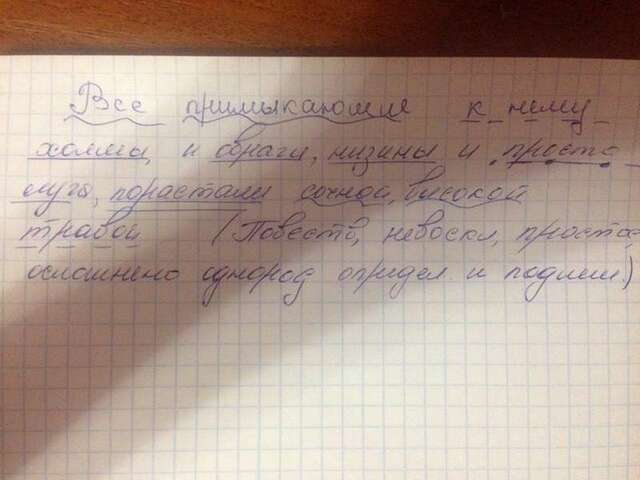 Все примыкающие к нему
холмы и овраги, низины и просто
луга, порастали сочной, высокой
травой (Повеств, невоскл, простое
осложнено однород определ и подлеж)